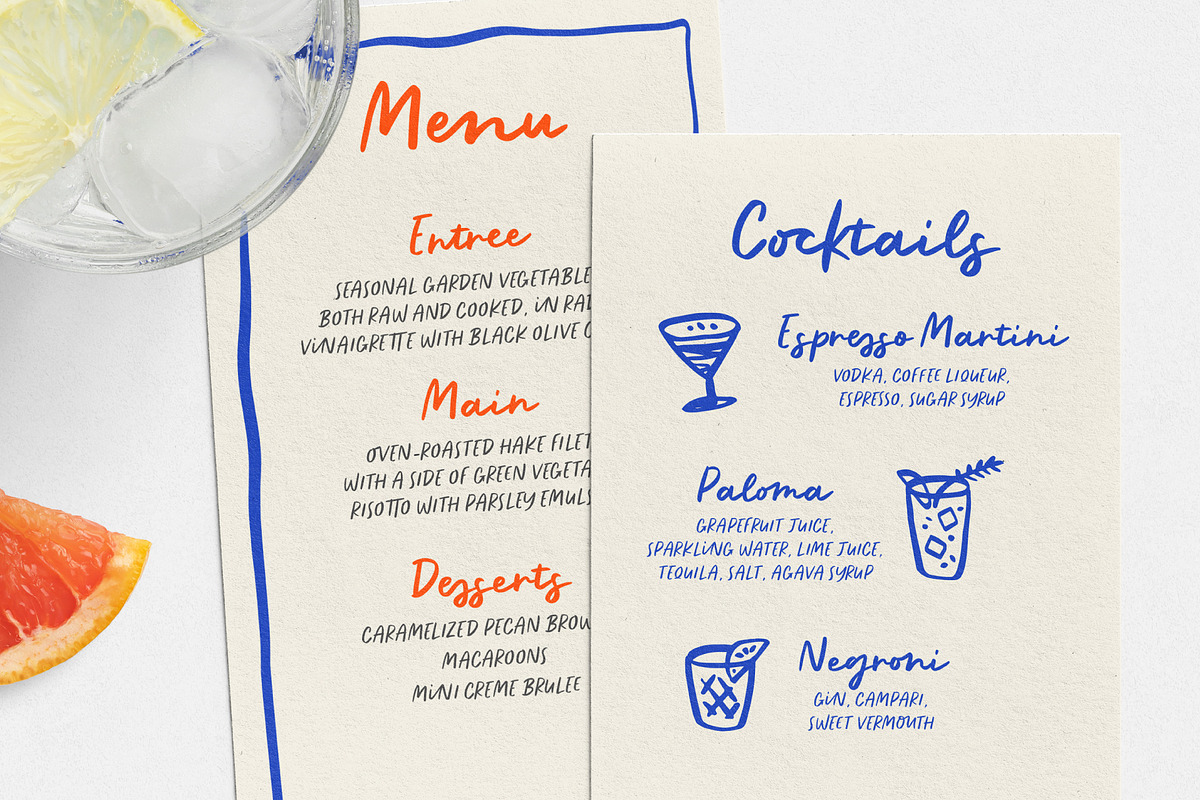 Menu
Entree
SEASONAL GARDEN VEGETABLE
BOTH RAW AND COOKED, IN
VINAIGRETTE WITH BLACK OLIVE
Main
OVEN-ROASTED HAKE FILET
WITH A SIDE OF GREEN
RISOTTO WITH PARSLEY
Desserts
CARAMELIZED PECAN
MACAROONS
MINI CREME BRULEE
Cocktails
Espresso Martini
VODKA, COFFEE LIQUEUR,
ESPRESSO, SUGAR SYRUP
Paloma
GRAPEFRUIT JUICE,
SPARKLING WATER, LIME JUICE,
TEQUILA, SALT, AGAVA SYRUP
Negroni
GIN, CAMPARI,
SWEET VERMOUTH